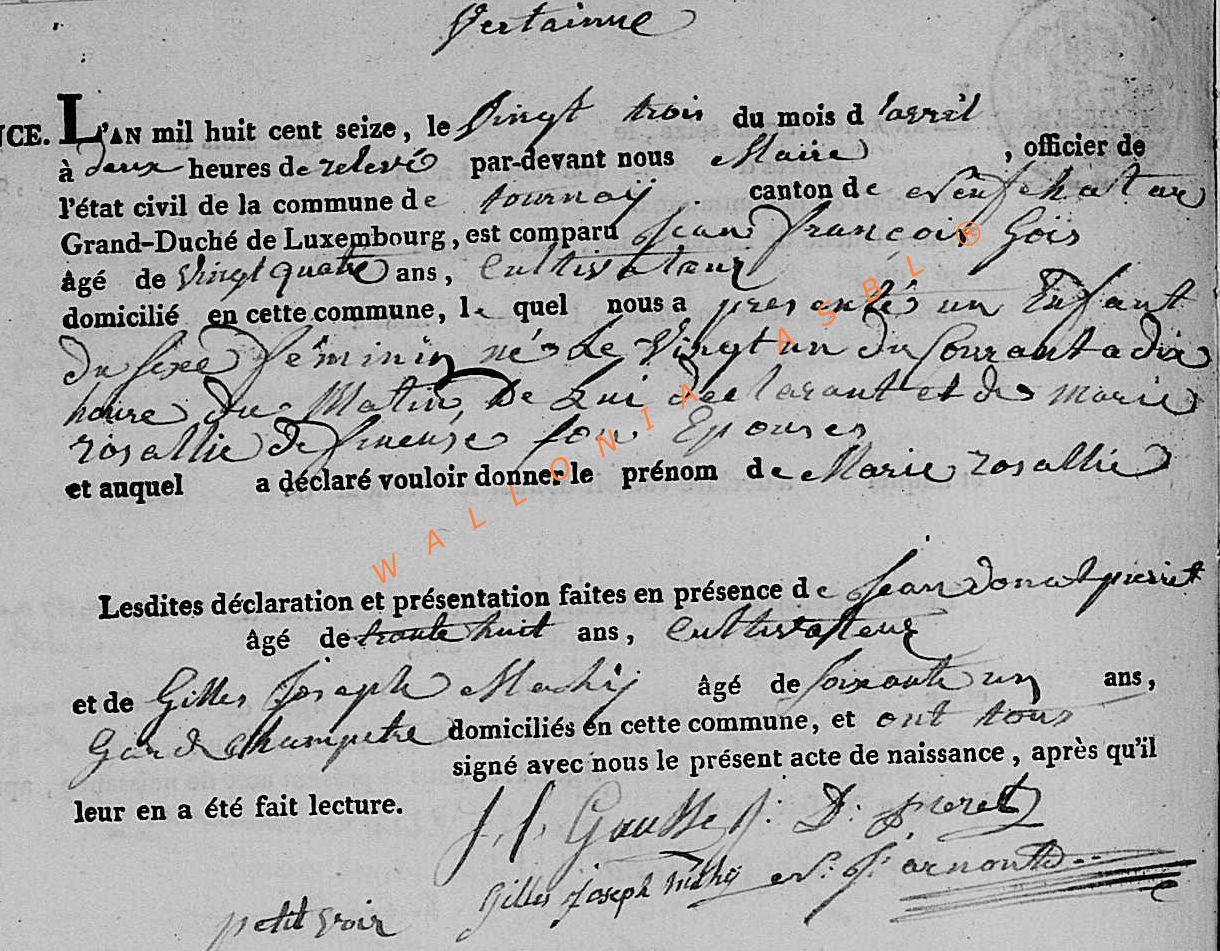 Vertainne
NCE. L'AN mil huit cent seize, le Vingt trois du mois d lavril
à deux heures de relevé par-devant nous Maire , officier de
l'état civil de la commune de tournaÿ canton de Neufchatau
Grand-Duché de Luxembourg, est comparu Jean françois Gois
âgé de Vingt quatre ans, Cultivateur
domicilié en cette commune, le quel nous a presentés un Enfant
du sexe féminin né Le Vingt un du Courant a dix
heure du Matin, De Lui declarant et de marie
rosallie De son Epouses
et auquel a déclaré vouloir donner le prénom de Marie rosallie
Lesdites déclaration et présentation faites en présence de Jean donat pierret
âgé de trante huit ans, Cultivateur
et de Gilles Joseph Machÿ âgé de soixante un ans,
Garde Champetre domiciliés en cette commune, et ont tous
signé avec nous le présent acte de naissance, après qu'il
leur en a été fait lecture.
J. f. Gousse J: D: pieret
Gilles Joseph Machÿ arnould
petit voir
WALLONIA ASBL ®